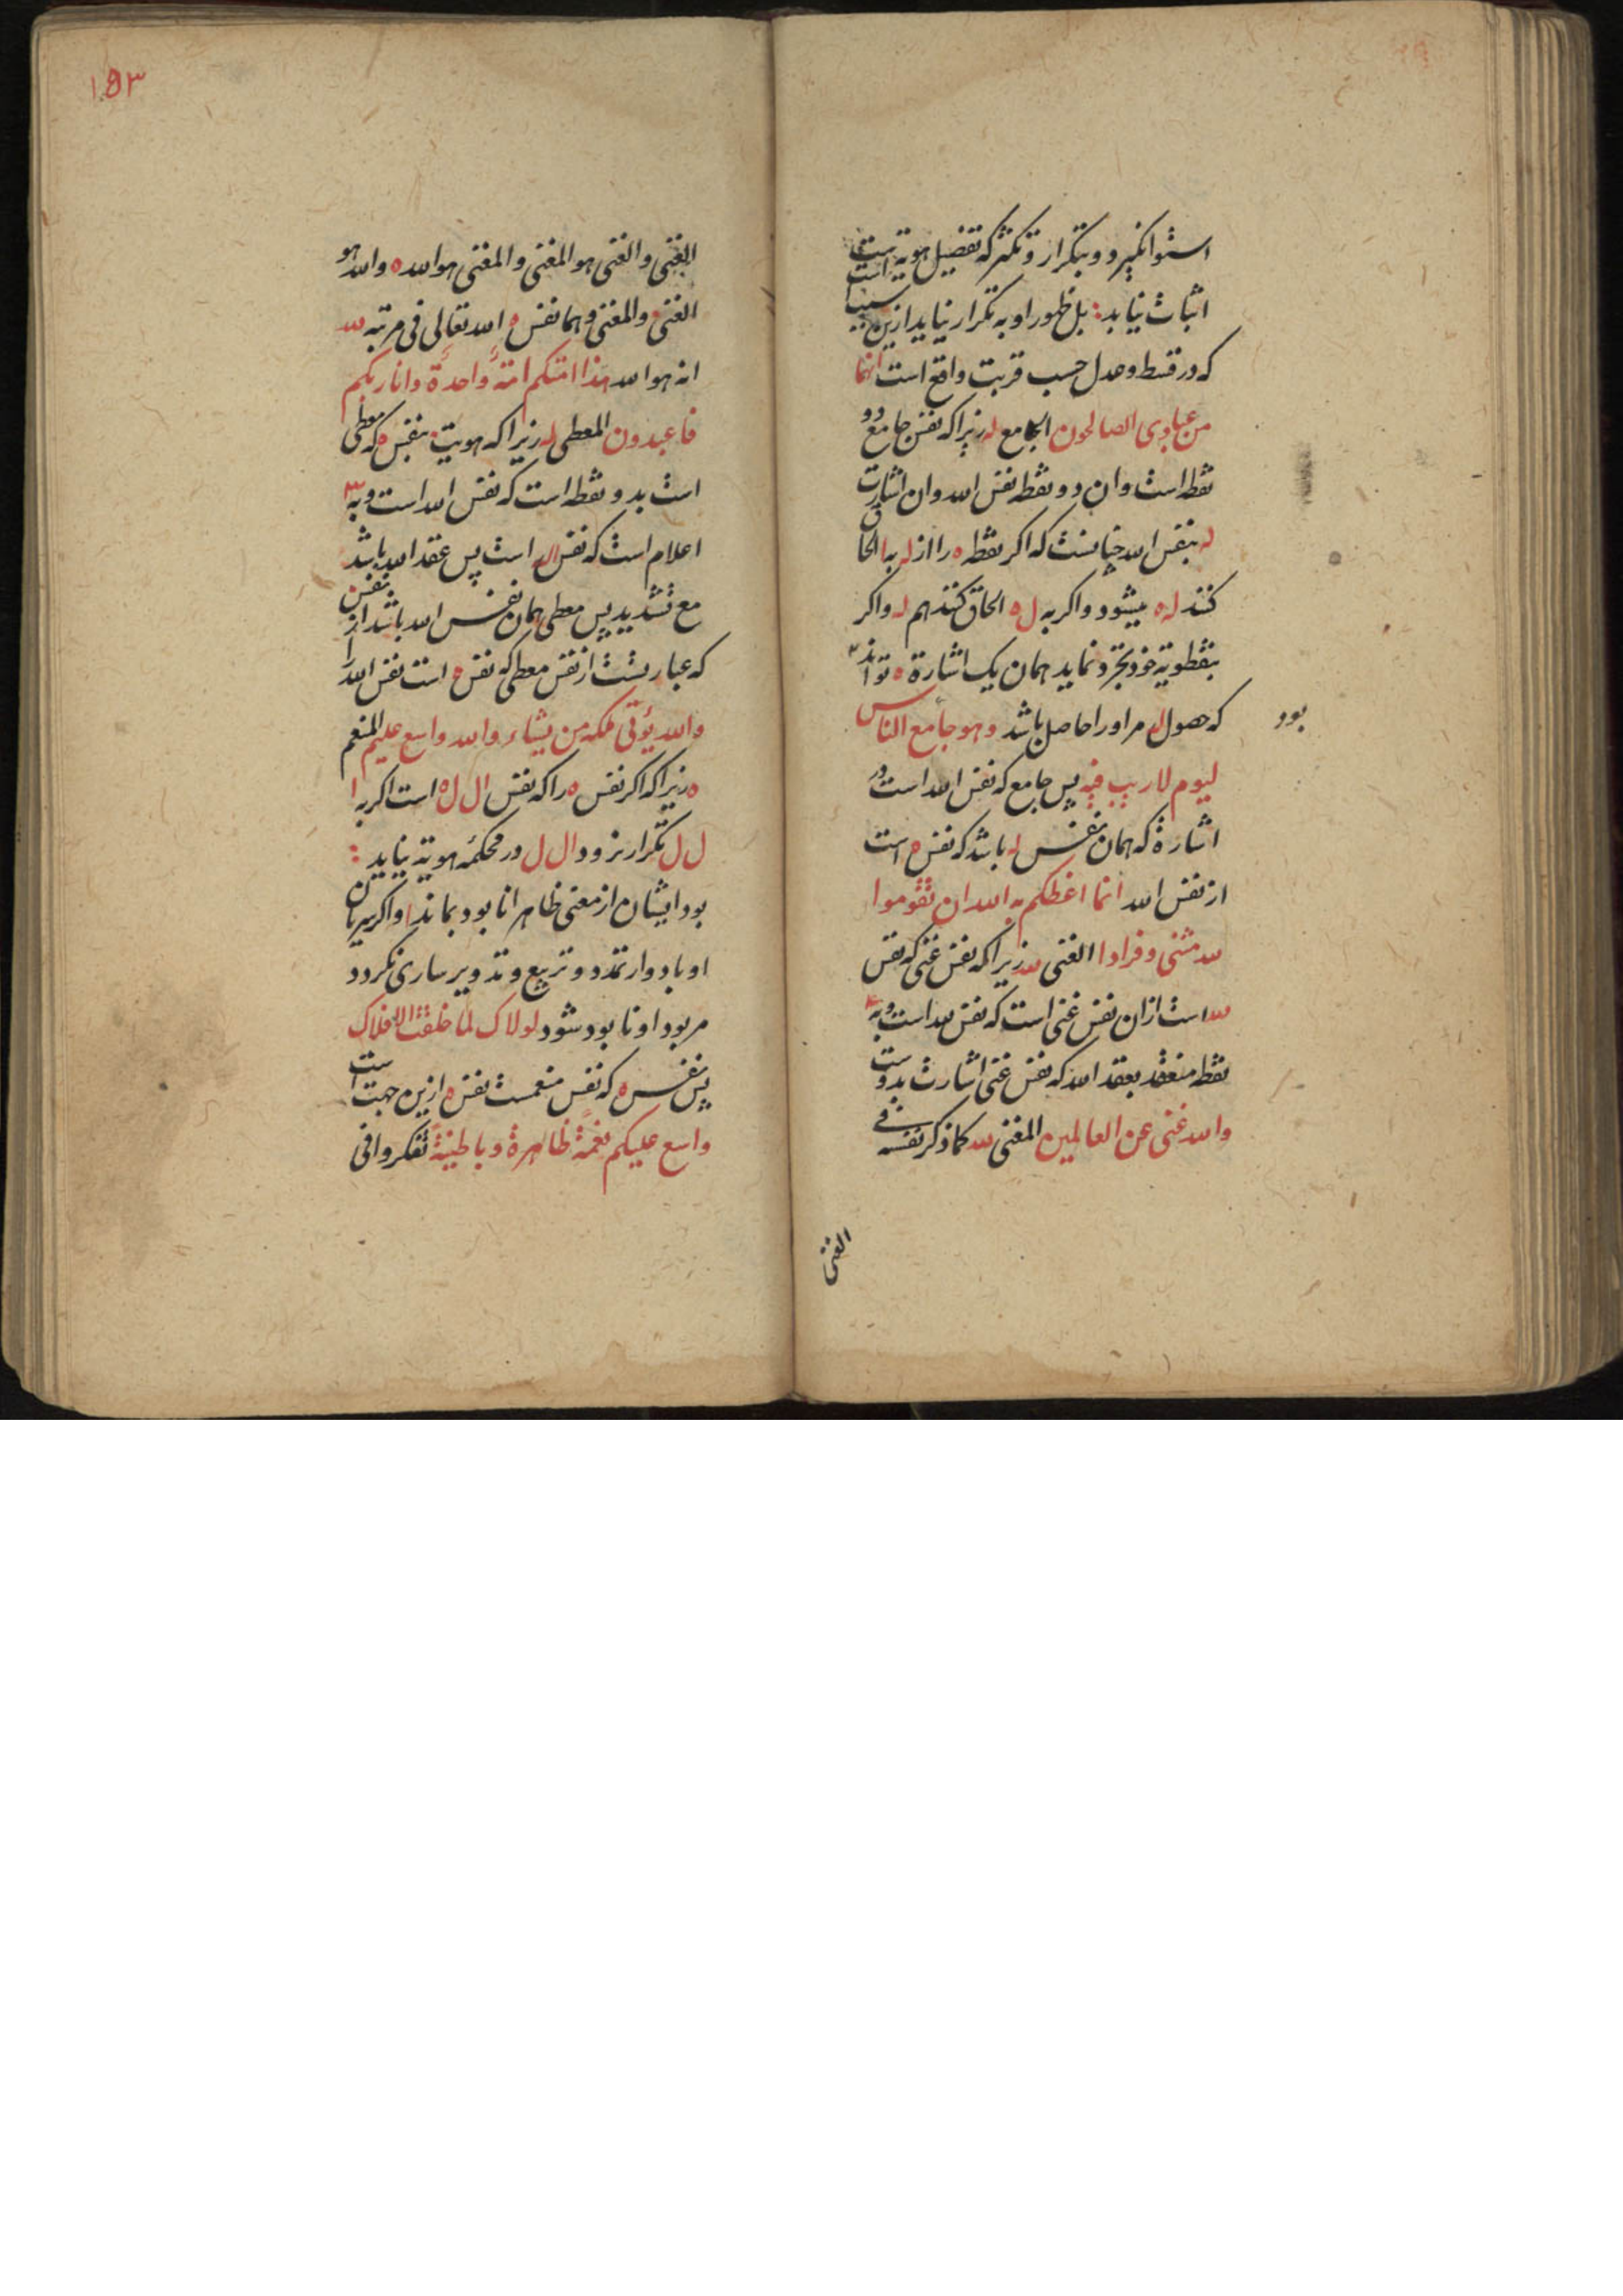 استوا نگیرد و بتکرار و تکثر که تفضیل هویة است
اثبات نیابد : بل ظهور او به تکرار نیاید ازین سبب است
که در قسط و عدل حسب قربت واقع است انها
من عبادی الصالحون الجامع له زیرا که نفس جامع دو
نقطه است و ان دو نقطه نفس الله و ان اشارت
له بنفس الله چنانست که اکر نقطه ه را از له به ا الحاق
کنند له ه میشود و اکر به ل ه الحاق کنند هم له و اکر
بنقطویة خود تجرد نماید همان یک اشارة ه تواند
که حصول له مر او را حاصل باشد وهو جامع الناس
بود
لیوم لاریب فیه پس جامع که نفس الله است در
اشارة که همان نفس له باشد که نفس ه است
از نفس الله انما اعظکم به الله ان تقوموا
لله مثنی و فرادا الغنی لله زیرا که نفس غنی که نفس
لله است ازان نفس غنی است که نفس لله است و به ۳
نقطه منعقد بعقد الله که نفس غنی اشارت بدوست
والله غنی عن العالمین المغنی لله کما ذکر نفسه فی
الغنی
۱۵۳
الغنی و الغنی هو المغنی و المغنی هو الله ه و الله هو
الغنی و المغنی و هما نفس ه الله تعالی فی مرتبه لله
انه هو الله هذا امتکم امة واحدة وانا ربکم
فاعبدون المعطی له زیرا که هویت بنفس ه که معطی
است بدو نقطه است که نفس الله است و به ۳
اعلام است که نفس اله است پس عقد الله باشد
مع تشدید پس معطی همان نفس الله باشد از نفس
که عبارتست از نفس معطی که نفس ه است نفس الله را
والله یؤتی ملکه من یشاء والله واسع علیم المنعم
ه زیرا که اکر نفس ه را که نفس ال ل ه است اکر به ا
ل ل تکرار نرود ال ل در محکمه هویة نیاید :
بود ایشان از معنی ظاهر انا بود بماند ا و اکر سریان
او بادوار تمدد و تربیع و تدویر ساری نکردد
مر بود او نابود شود لولاک لما خلقت الافلاک
پس نفس ه که نفس منعمست نفس ه ازین جهت است
واسع علیکم نعمة ظاهرة و باطنیة تفکروا فی